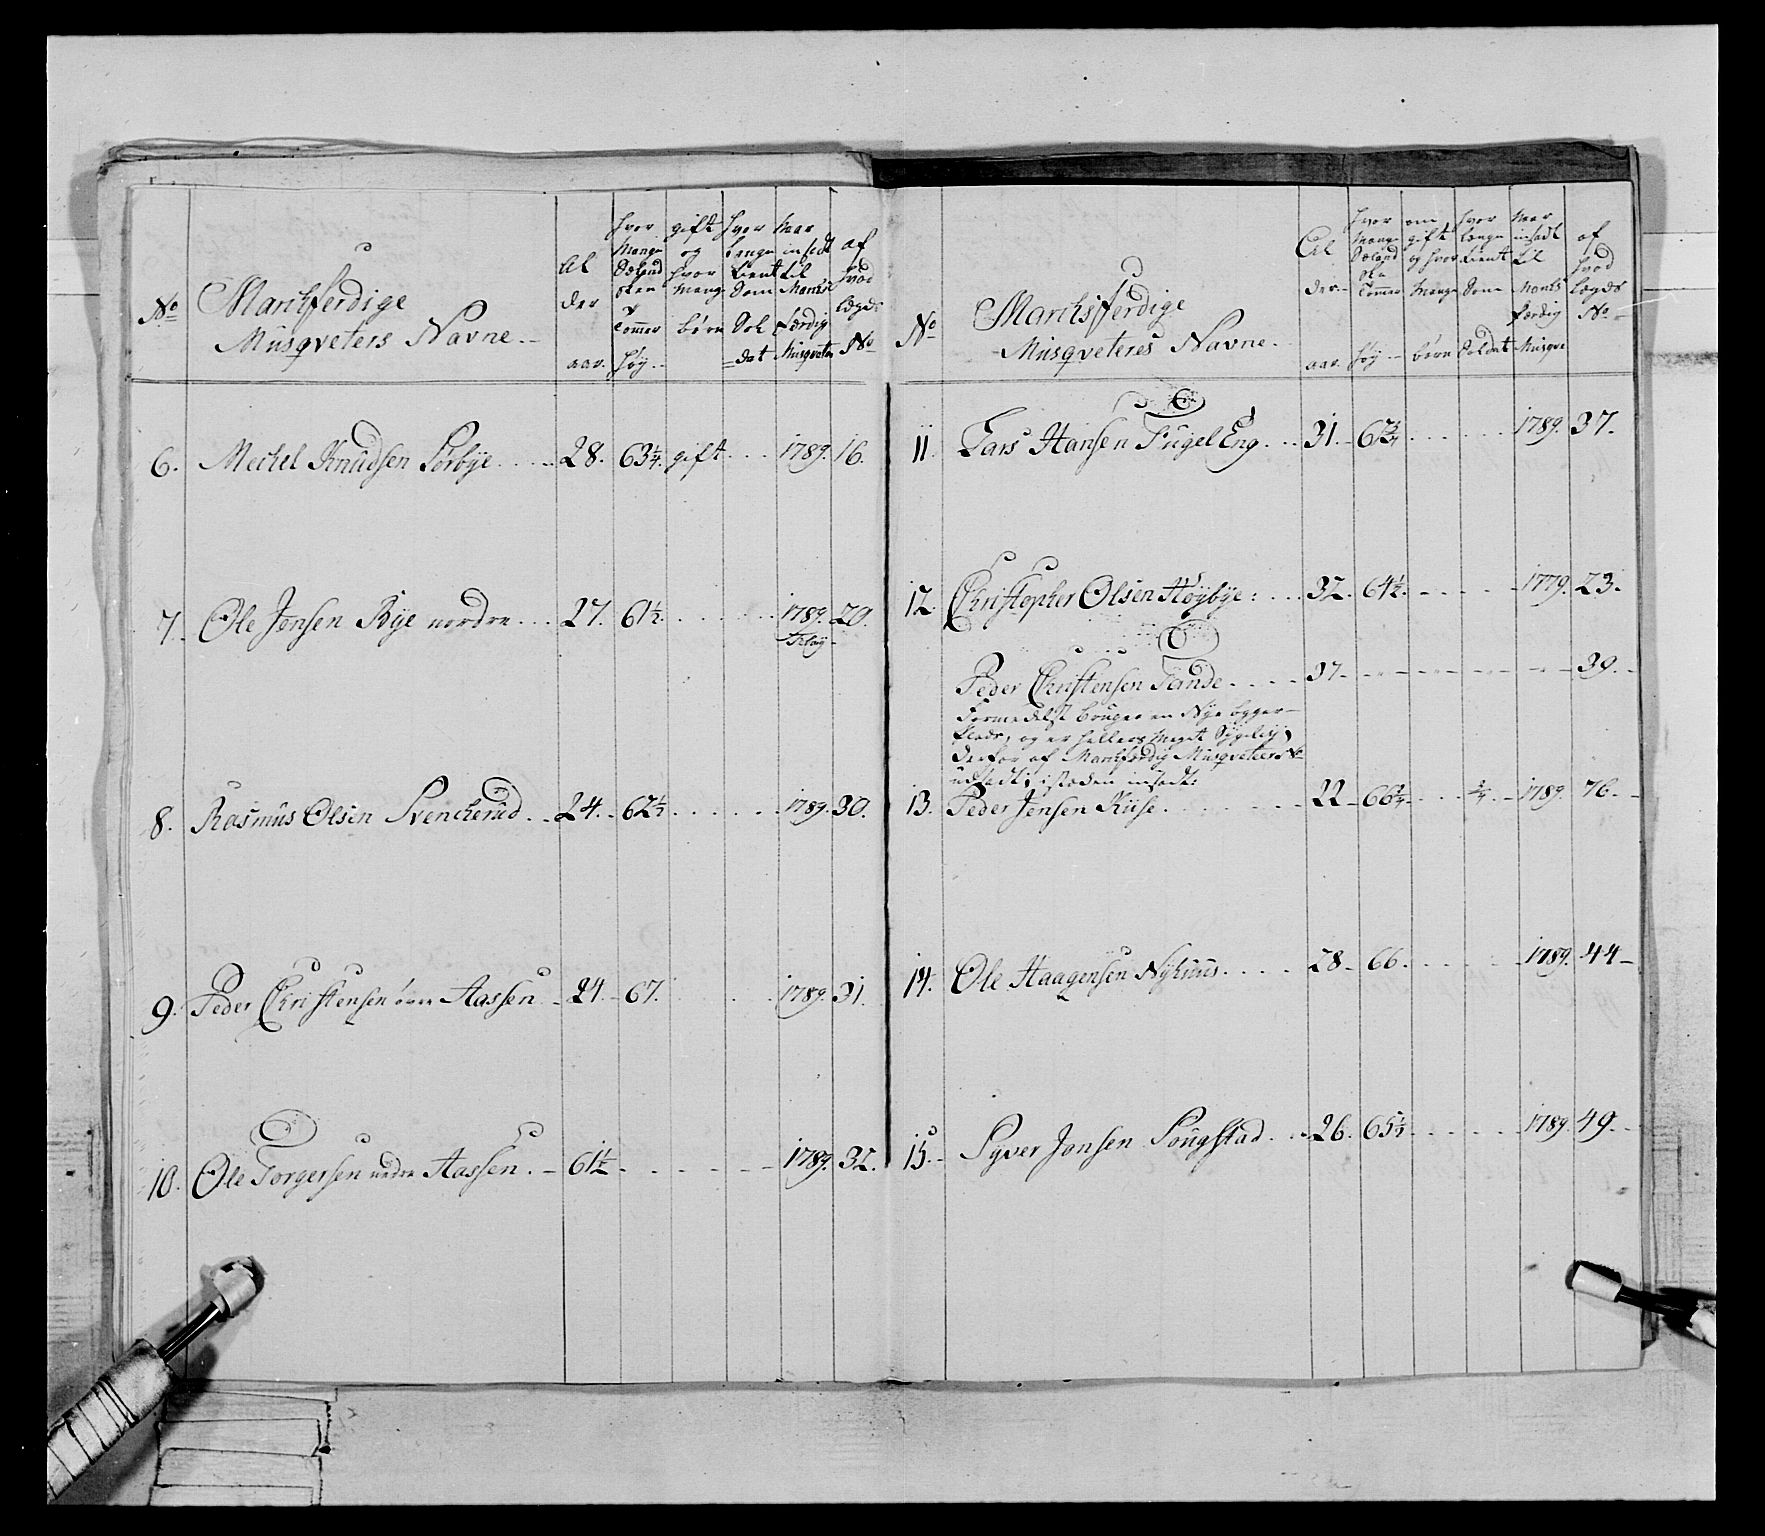 No
Marchferdige
Musqveters Navne.
Al
der
aar.
hvor
Mange
Tommer
høy
gift
og
hvor
mange
børn
hvor
Længe
tient
Som
Sol
dat
Naar
indsadt
til
March
færdig
Musqveter
af
hvad
Lægds
No
6. Mechel Knudsen Sørbye 28. 63¼. gift 1789. 16.
7. Ole Jensen Rye nordre 27. 61½. 1789. 20.
8. Rasmus Olsen Svencherud 24. 62½ 1789. 30.
9. Peder Christensen øvre Aassen 24. 67. 1789. 31.
10. Ole Torgersen nedre Aassen 61½ 1789. 32.
No
Marchsferdige
Musqveteres Navne.
Al
der
aar.
hvor
Mange
Tommer
høy
om
gift
og hvor
Mange
børn
hvor
længe
tient
Som
Soldat
Naar
indsadt
til
March
færdig
Musqve
af
hvad
Lægds
No
11. Lars Hansen Fugel Eng 31. 67¾ 1789. 37.
12. Christopher Olsen Høybye 32. 64½. 1779. 23.
Peder Christensen Tande 37 39.
Formedelst bruger en Nye bygger
Plads, og er hellers Meget Sygelig,
derfor af Marchferdig Musqveteer No
udsadt, i steden indsadt:
13. Peder Jensen Kiise 22 66¾ 1789. 76.
14. Ole Haagensen Nyhuus 28 66. 1789. 44
15. Syver Jonsen Songstad 26. 65½ 1789. 49.